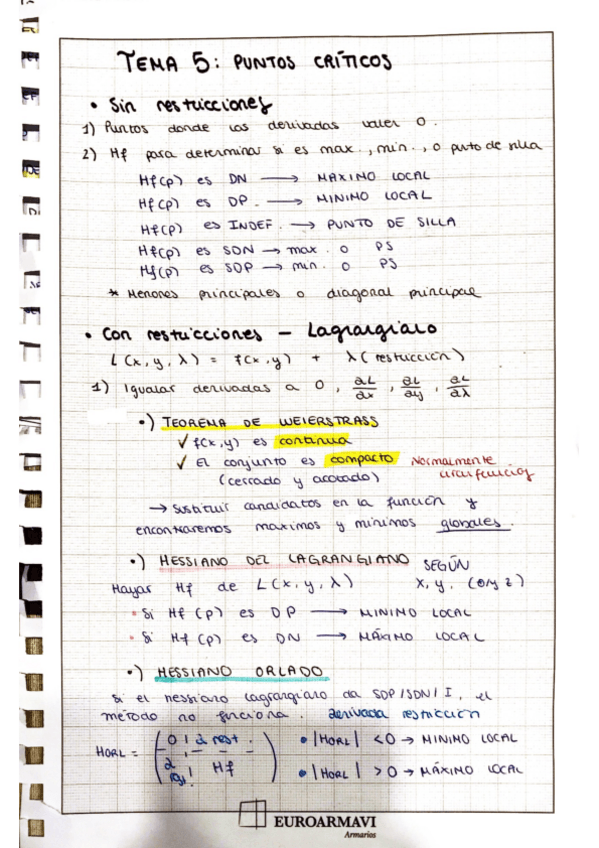 TEMA 5: PUNTOS CRÍTICOS
• Sin restricciones
1) Puntos donde las derivadas valen 0.
2) Hf para determinar si es max., min., o punto de silla
Hf(p) es DN → MAXIMO LOCAL
Hf(p) es DP. → MINIMO LOCAL
Hf(p) es INDEF. → PUNTO DE SILLA
Hf(p) es SDN → max. o PS
Hf(p) es SDP → min. o PS
* Menores principales o diagonal principal
• Con restricciones – Lagrangiano
L(x,y,λ) = f(x,y) + λ(restricción)
1) Igualar derivadas a 0, ∂L/∂x, ∂L/∂y, ∂L/∂λ
•) TEOREMA DE WEIERSTRASS
✓ f(x,y) es continua
✓ El conjunto es compacto Normalmente
(cerrado y acotado) circunferencias
→ Sustituir candidatos en la función y
encontraremos maximos y mínimos globales.
•) HESSIANO DEL LAGRANGIANO SEGÚN
Hayar Hf de L(x,y,λ) x,y. (o y z)
• Si Hf(p) es DP → MINIMO LOCAL
• Si Hf(p) es DN → MÁXIMO LOCAL
•) HESSIANO ORLADO
Si el hessiano lagrangiano da SDP/SDN/I, el
método no funciona. derivada restricción
HORL = (0 | ∂ rest. • |HORL| <0 → MINIMO LOCAL
∂ | Hf) • |HORL| >0 → MÁXIMO LOCAL
EUROARMAVI
Armarios